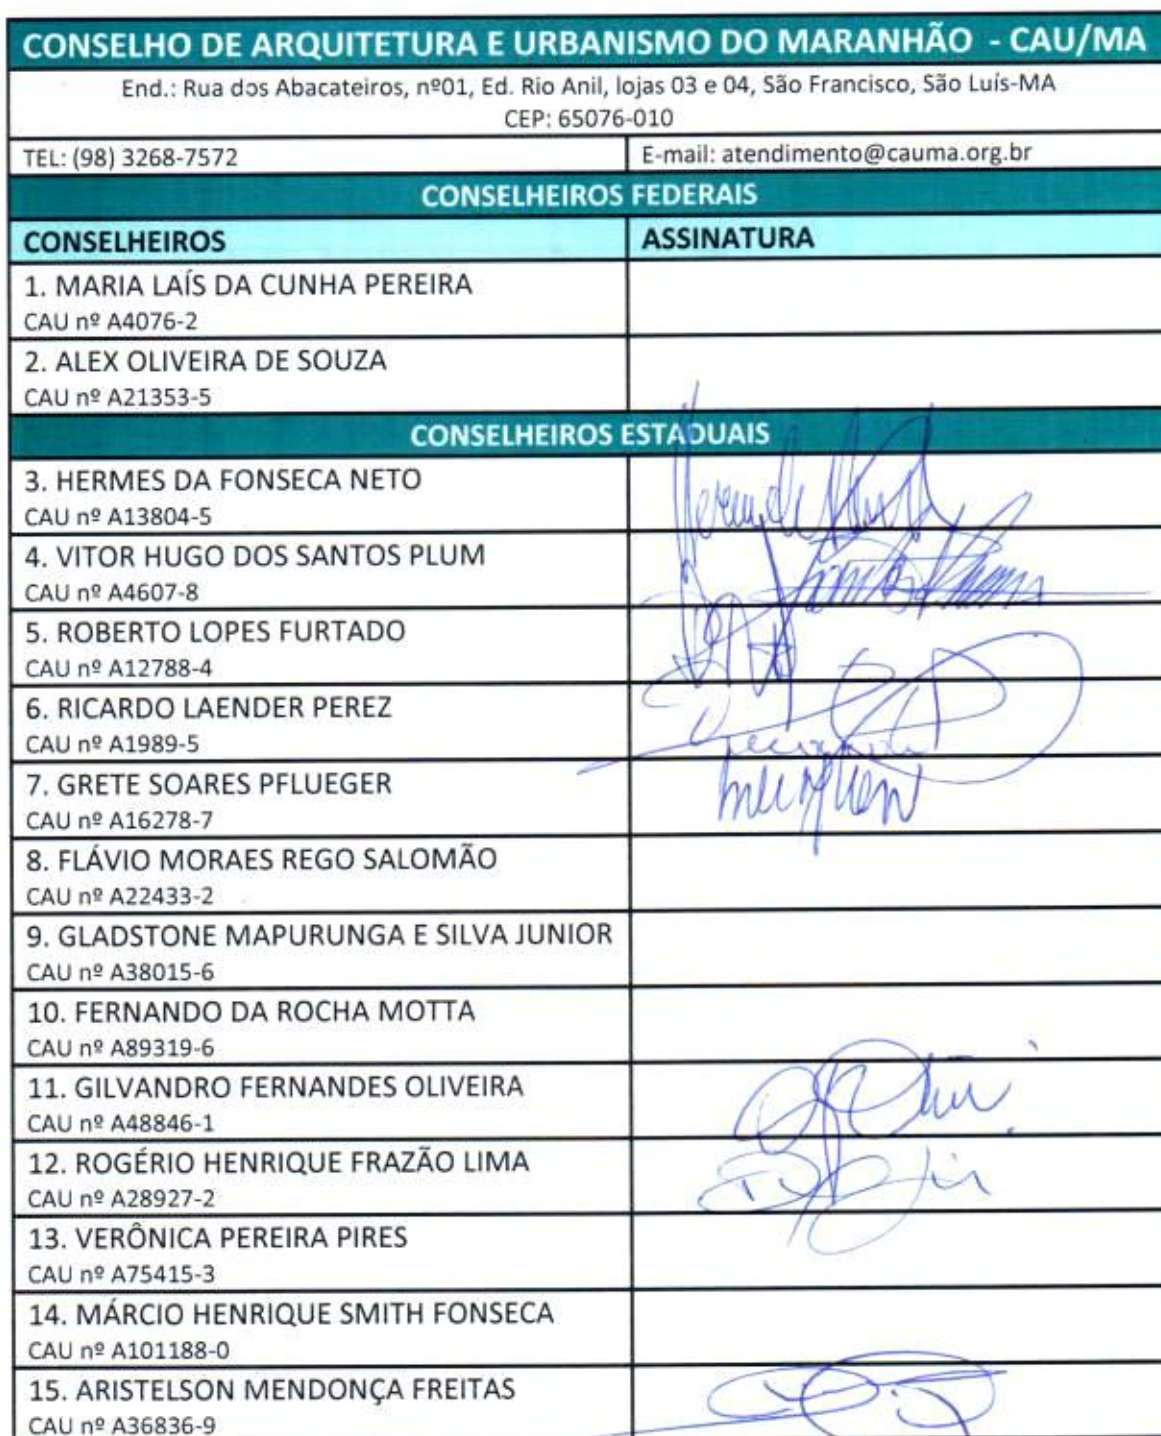 CONSELHO DE ARQUITETURA E URBANISMO DO MARANHÃO - CAU/MA
End.: Rua dos Abacateiros, nº01, Ed. Rio Anil, lojas 03 e 04, São Francisco, São Luís-MA
CEP: 65076-010
TEL: (98) 3268-7572 E-mail: atendimento@cauma.org.br
CONSELHEIROS FEDERAIS
CONSELHEIROS ASSINATURA
1. MARIA LAÍS DA CUNHA PEREIRA
CAU nº A4076-2
2. ALEX OLIVEIRA DE SOUZA
CAU nº A21353-5
CONSELHEIROS ESTADUAIS
3. HERMES DA FONSECA NETO
CAU nº A13804-5
4. VITOR HUGO DOS SANTOS PLUM
CAU nº A4607-8
5. ROBERTO LOPES FURTADO
CAU nº A12788-4
6. RICARDO LAENDER PEREZ
CAU nº A1989-5
7. GRETE SOARES PFLUEGER
CAU nº A16278-7
8. FLÁVIO MORAES REGO SALOMÃO
CAU nº A22433-2
9. GLADSTONE MAPURUNGA E SILVA JUNIOR
CAU nº A38015-6
10. FERNANDO DA ROCHA MOTTA
CAU nº A89319-6
11. GILVANDRO FERNANDES OLIVEIRA
CAU nº A48846-1
12. ROGÉRIO HENRIQUE FRAZÃO LIMA
CAU nº A28927-2
13. VERÔNICA PEREIRA PIRES
CAU nº A75415-3
14. MÁRCIO HENRIQUE SMITH FONSECA
CAU nº A101188-0
15. ARISTELSON MENDONÇA FREITAS
CAU nº A36836-9